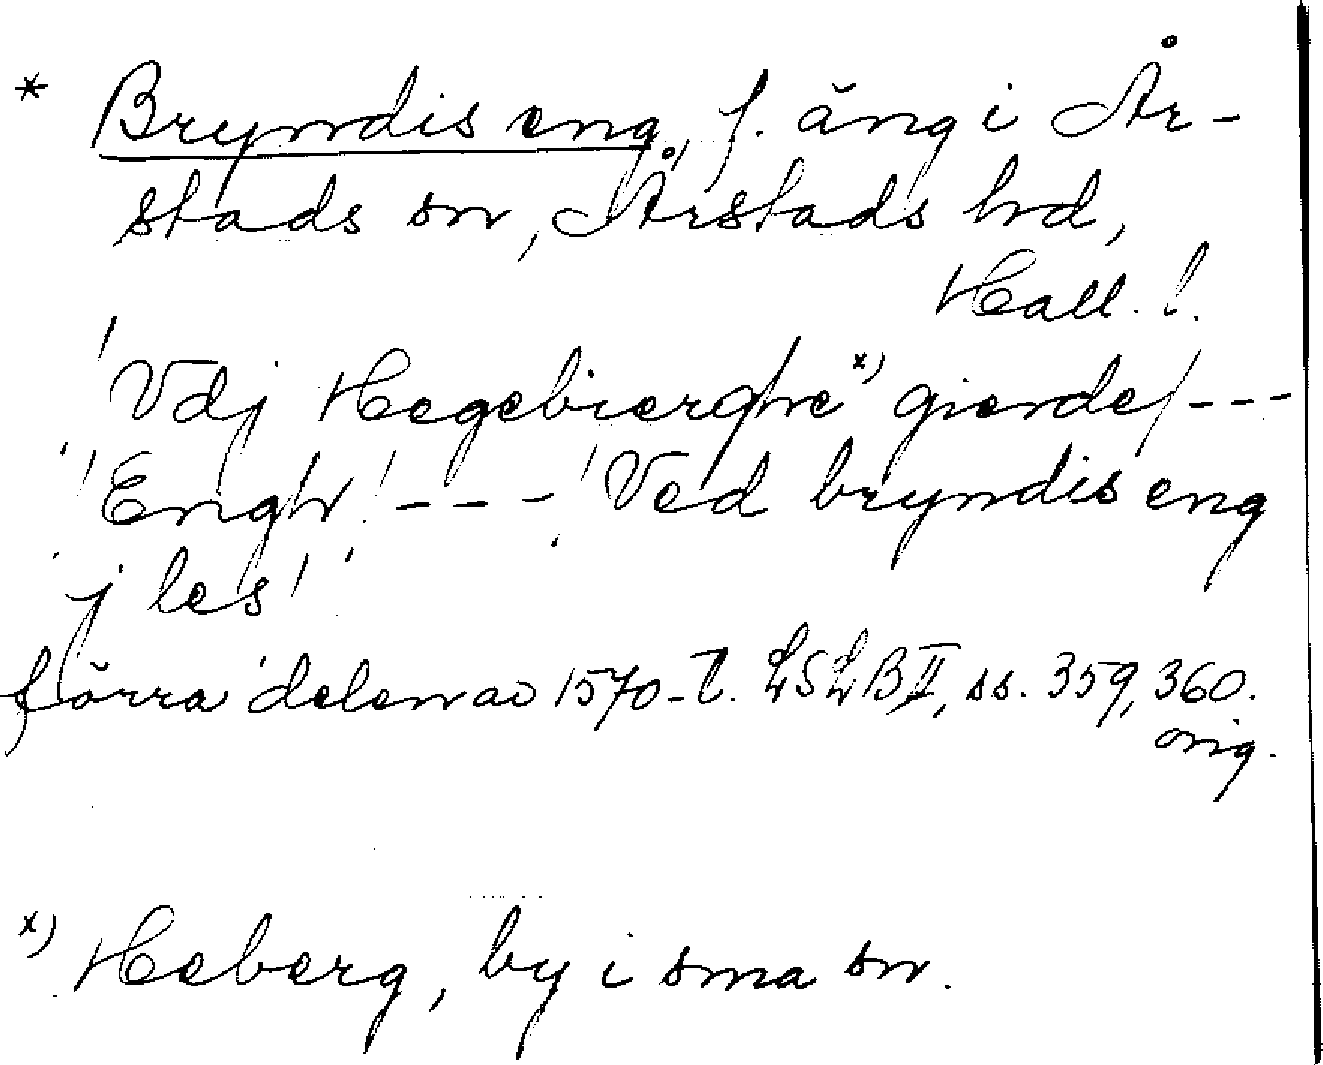 * Bryndis eng, f. äng i År-
stads sn, Årstads hd,
Hall. l.
'Vdj Hegebierghe x) gierde/ ---
'Engh! --- 'Ved bryndis eng
j les!'
förra delen av 1570-t. LSLB II, ss. 359, 360.
orig.
x) Heberg, by i sma sn.